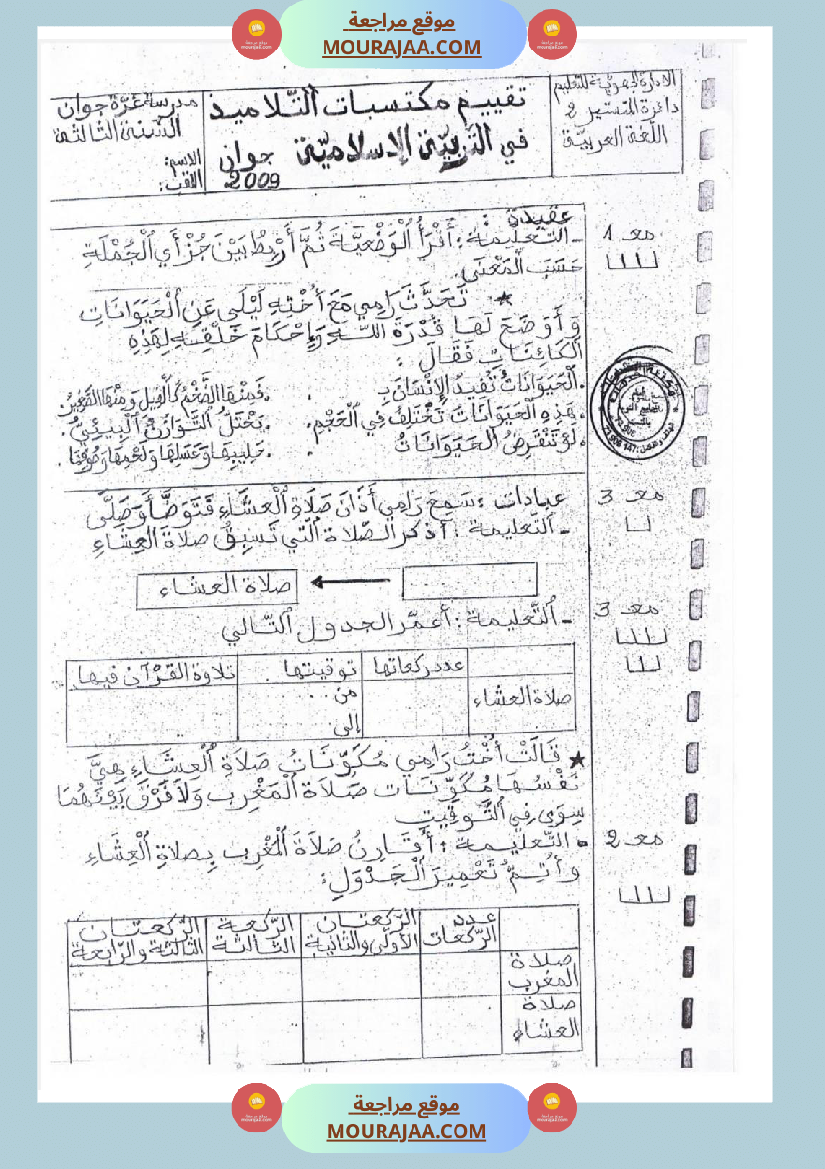 موقع مراجعة
MOURAJAA.COM
الادارة الجهوية للتعليم
دائرة المنستير 2
اللغة العربيّة
تقييم مكتسبات التّلاميذ
في التربيّة الإسلاميّة جوان 2009
مدرسة غرّة جوان
السّنة الثالثة
الاسم:
اللقب:
عقيدة :
مع 1
- التّعليمة : أَقْرَأُ الْوَضْعِيَّةَ ثُمَّ أَرْبِطُ بَيْنَ جُزْأَيِ الْجُمْلَةِ
حَسَبَ الْمَعْنَى
★ تَحَدَّثَ رَامِي مَعَ أُخْتِهِ لَيْلَى عَنِ الْحَيَوَانَاتِ
وَ أَوْضَحَ لَهَا قُدْرَةَ اللَّهِ وَإِحْكَامَ خَلْقِهِ لِهَذِهِ
الْكَائِنَاتِ فَقَالَ :
. الْحَيَوَانَاتُ تُفِيدُ الإِنْسَانَ بِ . . فَمِنْهَا الضَّخْمُ كَالْفِيلِ وَمِنْهَا
. هَذِهِ الْحَيَوَانَاتُ تَخْتَلِفُ فِي الْحَجْمِ . . يَخْتَلُّ التَّوَازُنُ الْبِيئِيُّ .
. لَوْ تَنْقَرِضُ الحَيَوَانَاتُ . . حَلِيبِهَا وَعَسَلِهَا وَلَحْمِهَا وَصُوفِهَا .
مع 3
عبادات : سَمِعَ رَامِي أَذَانَ صَلَاةِ الْعِشَاءِ فَتَوَضَّأَ وَصَلَّى
- التعليمة : أذكر الصّلاة الّتي تَسبِقُ صلاة العِشَاءِ
صلاة العشاء
مع 3
- التَّعليمة : أعمّر الجدول التّالي
عدد ركعاتها توقيتها تلاوة القرْآن فيها
صلاة العشاء من . . .
إلى
★ قَالَتْ أُخْتُ رَامِي مُكَوِّنَاتُ صَلَاةِ الْعِشَاءِ هِيَ
نَفْسُهَا مُكَوِّنَات صَلَاة الْمَغْرِب وَلَا فَرْقَ بَيْنَهُمَا
سِوَى فِي التَّوقِيتِ
مع 2
• التَّعليمة : أُقَارِنُ صَلَاةَ الْمَغْرِب بِصلاةِ الْعِشَاءِ
و أُتِمُّ تَعْمِيرَ الْجَدْوَلِ :
عدد الرّكعات الرّكعتان الأولى والثانية الرّكعة الثالثة الرّكعتان الثالثة والرّابعة
صلاة المغرب
صلاة العشاء
موقع مراجعة
MOURAJAA.COM